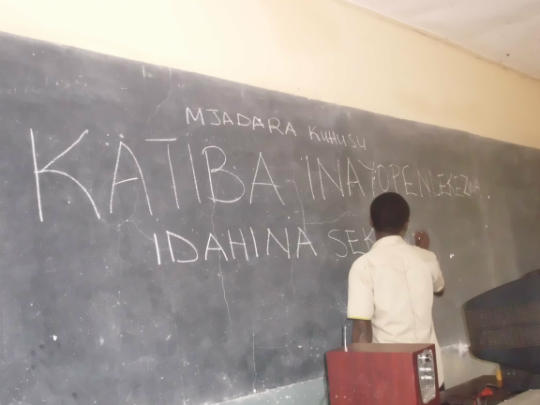 MJADARA KUHUSU
KATIBA INAYOPENLEKEZWA
IDAHINA SEK